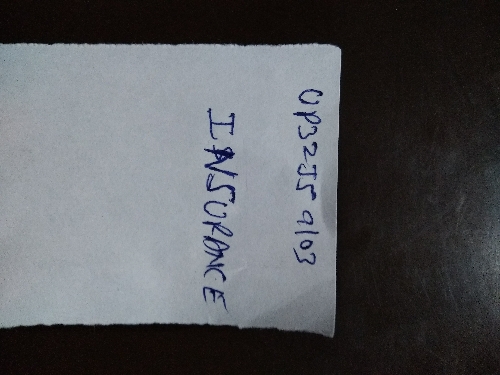 UP32JJ 9103
INSURANCE